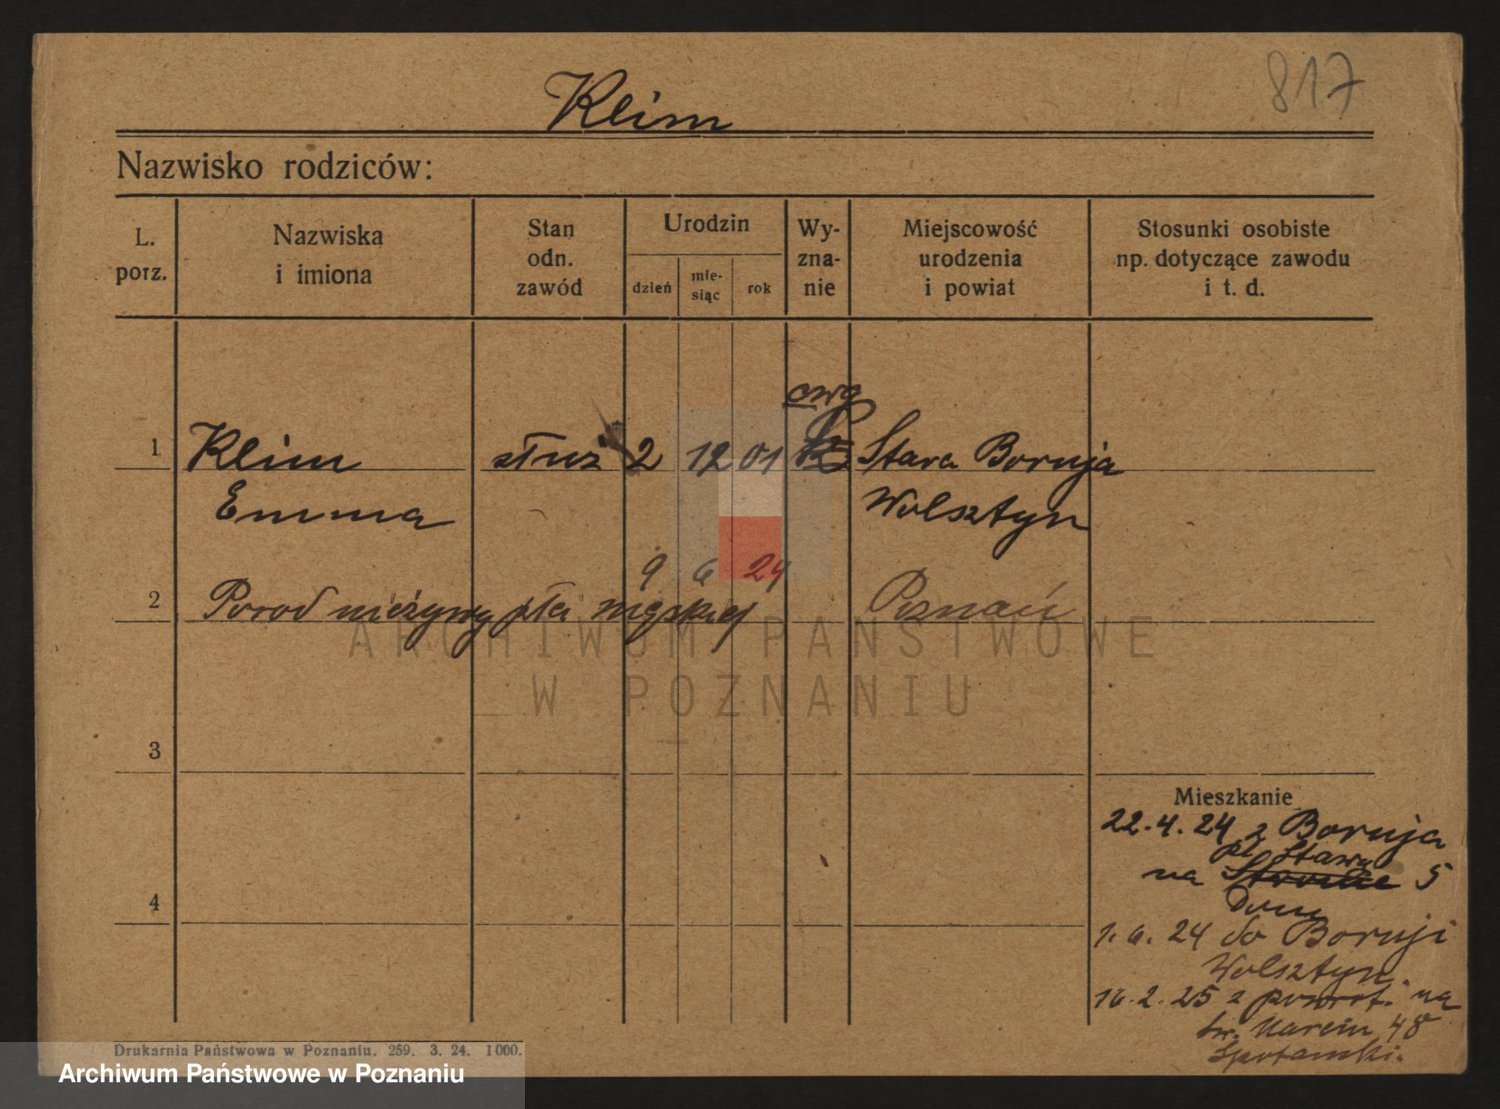 817
Klim
Nazwisko rodziców:
L. porz.
Nazwiska i imiona
Stan odn. zawód
Urodzin
dzień
mie-siąc
rok
Wy-zna-nie
Miejscowość urodzenia i powiat
Stosunki osobiste np. dotyczące zawodu i t. d.
ewg
1 Klim służ 2 12 01 Stara Boruja
Emma Wolsztyn
9 6 24
2 Poród nieżywy płci męskiej Poznań
ARCHIWUM PAŃSTWOWE
W POZNANIU
3
Mieszkanie
22.4.24 z Boruja
pl. Stawny
na 5
Dom
4
1.6.24 do Boruji
Wolsztyn.
16.2.25 z powrot. na
św. Marcin 48
Drukarnia Państwowa w Poznaniu. 259. 3. 24. 1000.
Archiwum Państwowe w Poznaniu